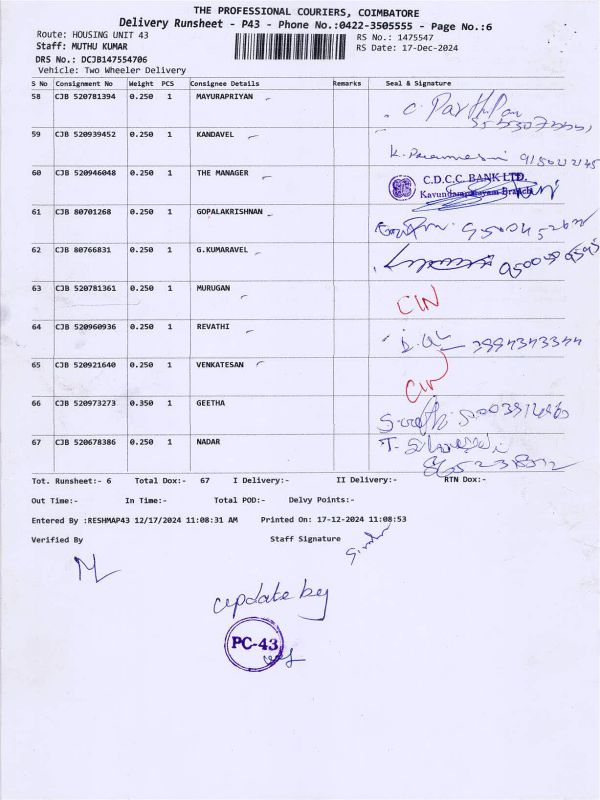 THE PROFESSIONAL COURIERS, COIMBATORE
Delivery Runsheet - P43 - Phone No.:0422-3505555 - Page No.:6
Route: HOUSING UNIT 43 RS No.: 1475547
Staff: MUTHU KUMAR RS Date: 17-Dec-2024
DRS No.: DCJB147554706
Vehicle: Two Wheeler Delivery
S No Consignment No Weight PCS Consignee Details Remarks Seal & Signature
58 CJB 520781394 0.250 1 MAYURAPRIYAN
59 CJB 520939452 0.250 1 KANDAVEL
60 CJB 520946048 0.250 1 THE MANAGER C.D.C.C. BANK LTD.
Kavundampalayam Branch
61 CJB 80701268 0.250 1 GOPALAKRISHNAN
62 CJB 80766831 0.250 1 G.KUMARAVEL
63 CJB 520781361 0.250 1 MURUGAN CIN
64 CJB 520960936 0.250 1 REVATHI
65 CJB 520921640 0.250 1 VENKATESAN
66 CJB 520973273 0.350 1 GEETHA
67 CJB 520678386 0.250 1 NADAR
Tot. Runsheet:- 6 Total Dox:- 67 I Delivery:- II Delivery:- RTN Dox:-
Out Time:- In Time:- Total POD:- Delvy Points:-
Entered By :RESHMAP43 12/17/2024 11:08:31 AM Printed On: 17-12-2024 11:08:53
Verified By Staff Signature
update by
PC-43